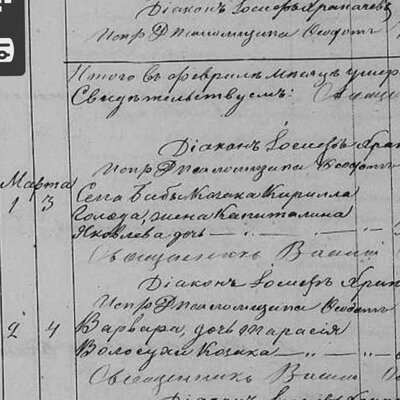 Діаконъ Іосифъ Храпачевъ
Испр Д Псаломщика Ѳеодотъ
Итого въ Февралѣ мѣсяцѣ умер
Свидѣтельствуемъ: Священ
Діаконъ Іосифъ Храп
Испр Д Псаломщика Ѳеодотъ
Марта
1 3 Села Бабы Козака Кирилла
Голода, жена Капиталина
Яковлева дочь — " —
Священникъ
Діаконъ Іосифъ Храп
Испр Д Псаломщика Ѳеодотъ
2 4 Варвара, дочь Тарасія
Волосухи Козака — " —
Священникъ
Діаконъ Іосифъ